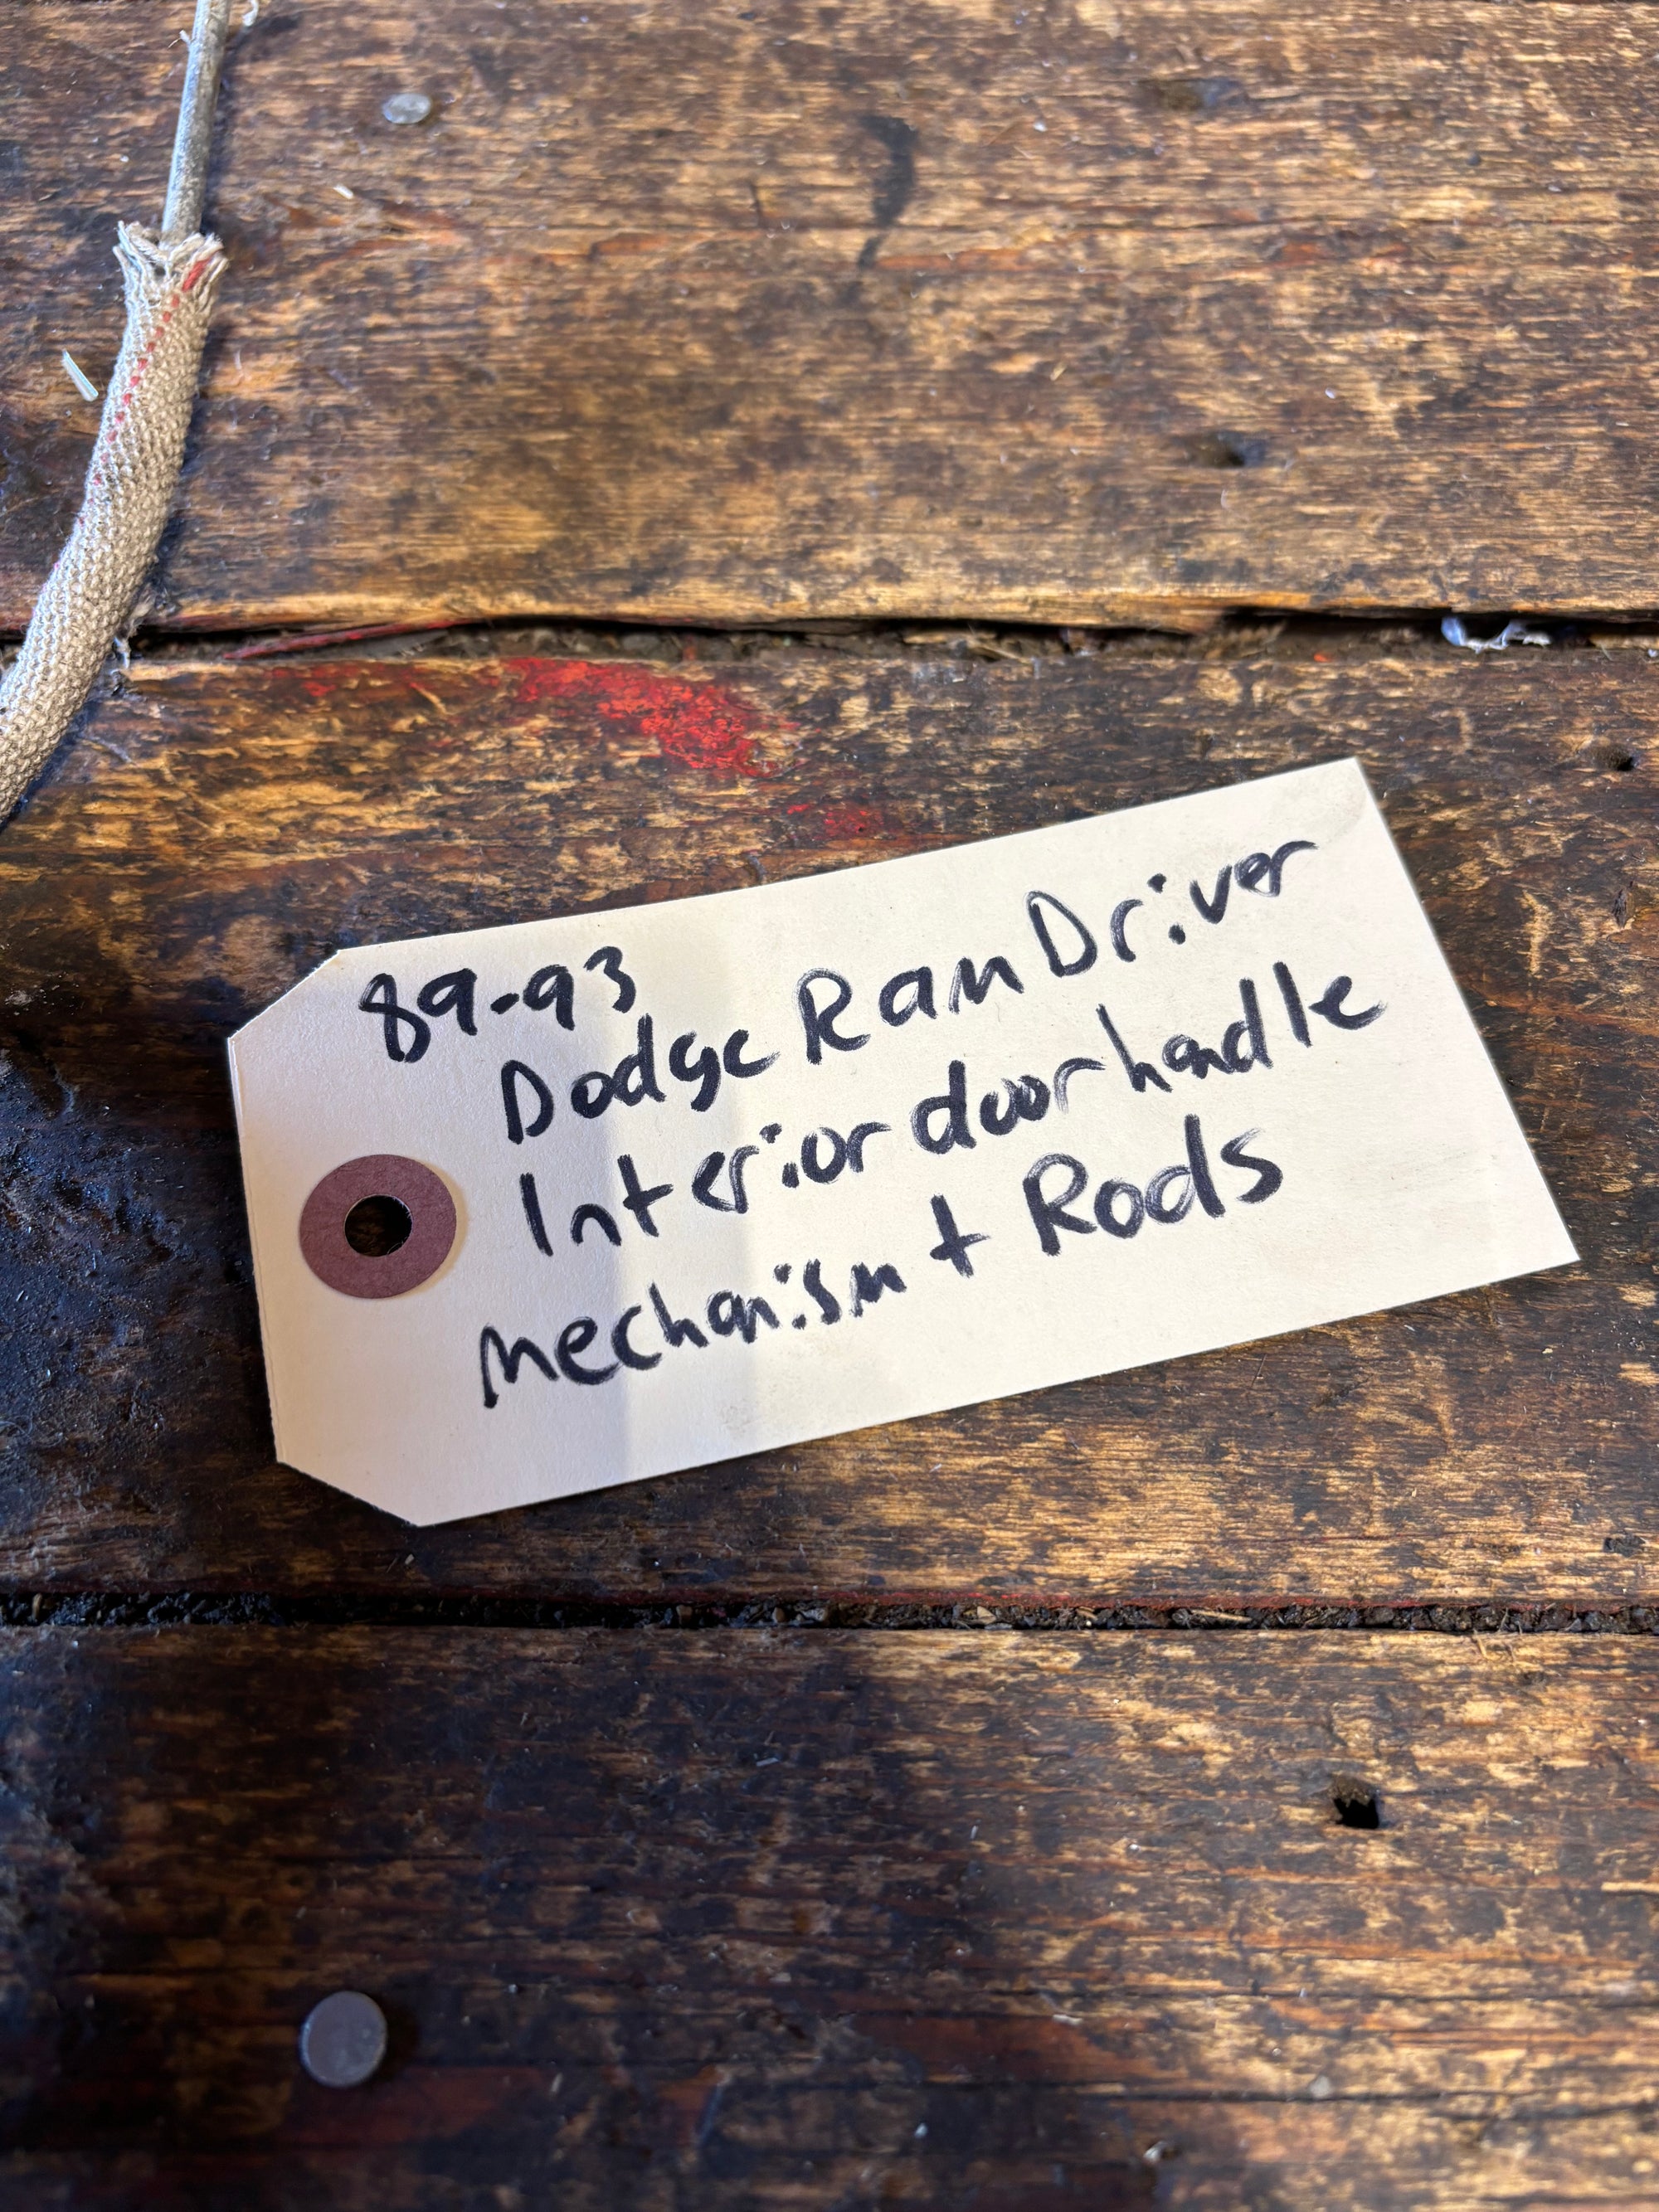 89-93
Dodge Ram Driver
Interior door handle
mechanism + Rods